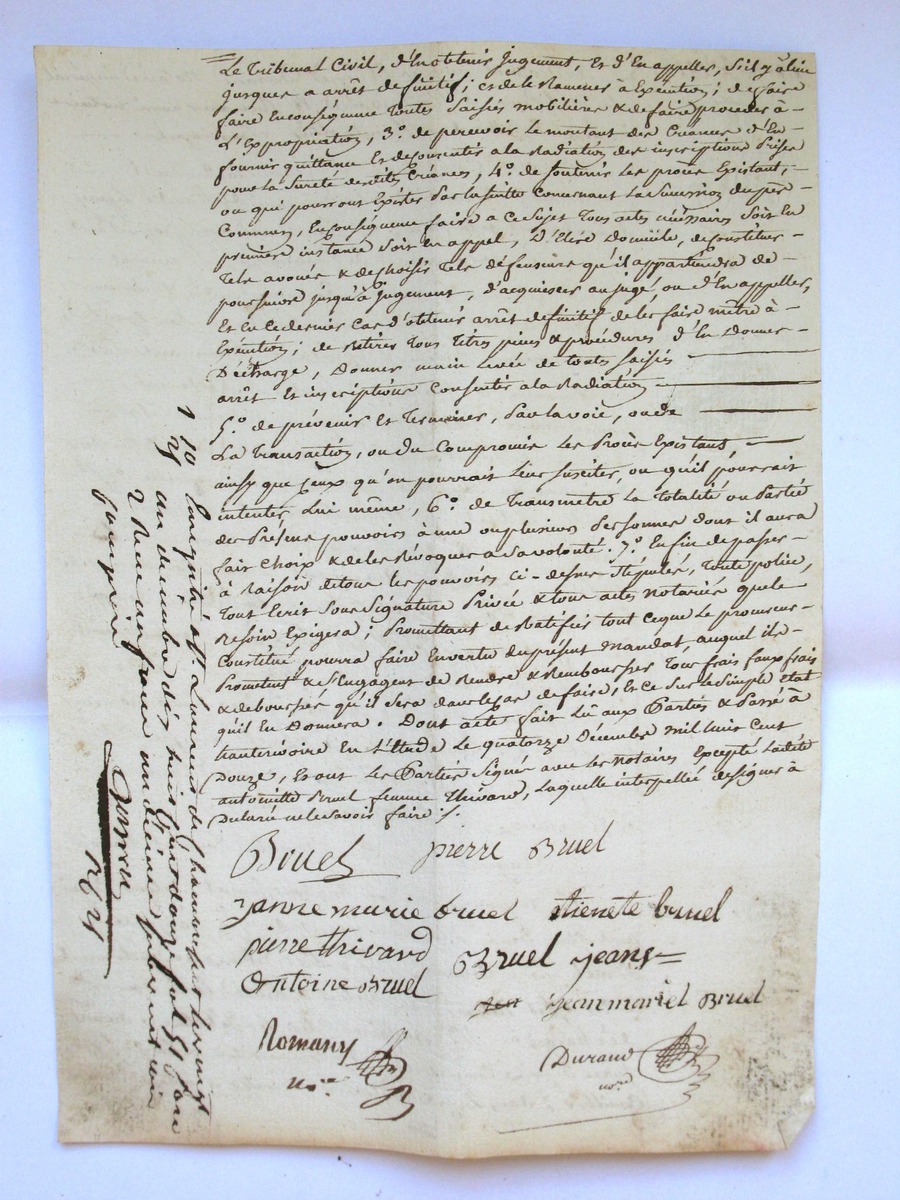 Le Tribunal Civil, d'En obtenir jugement, Et d'En appeller, s'il y a lieu
jusques a arrêt definitif; et de le Ramener à Exécution; de faire
faire En conséquence toutes saisies mobilières & de faire proceder à
L'Expropriation, 3.º de percevoir Le montant des Créances d'En
fournir quittance Et de consentir a la Radiation des inscriptions Prises
pour la Sureté desdites Créances, 4.º de soutenir Les procès Existant,
ou qui pourront Exister Par la suitte Concernant La Succession du père
Commun, En conséquence faire a ce Sujet Tous actes nécessaires Soit En
première instance Soit En appel, D'Elire Domicile, de constituer
Tels avoués & de choisir Tels défenseurs qu'il appartiendra de
poursuivre jusqu'à jugement, d'acquiescer au jugé, ou d'En appeller,
Et En ce dernier Cas d'obtenir arrêt definitif de les faire mêtre à
Exécution; de Retirer Tous Titres pièces & procédures d'En Donner
Décharge, Donner main Levée de toutes Saisies
arrêt Et inscriptions Consentir a la Radiation
5.º de prévenir Et Terminer, Par la voie, ou de
La Transaction, ou du Compromis Les Procès Existant,
ainsy que Ceux qu'on pourrait Leur Susciter, ou qu'il pourrait
intenter Lui même, 6.º de Transmettre La Totalité ou Partie
des Présens pouvoirs à une ou plusieurs Personnes dont il aura
fait Choix & de les Révoquer a Sa volonté. 7.º Enfin de passer
à Raison de tous les pouvoirs ci-dessus Stipulés, Toute police,
Tout Ecrit Sous Signature Privée & tous actes notariés que le
Besoin Exigera; Promettant de Ratifier tout Ce que Le procureur
Constitué pourra faire En vertu du présent mandat, auquel ils
Promettent & S'Engagent de Rendre & Rembourser Tous frais faux frais
& deboursés qu'il Sera dans le Cas de faire, Et Ce Sur le Simple état
qu'il En Donnera. Dont acte fait Lû aux Parties & Passé à
hauterivoire En L'Etude Le quatorze Décembre mil huit Cent
Douze, Et ont Les Parties Signé avec les notaires Excepté Ladite
antoinette Bruel femme Thivard, Laquelle interpellée de signer a
Déclaré ne le Savoir faire ./.
Bruel pierre Bruel
janne marie bruel etienete bruel
pierre thivard Bruel jean
Antoine Bruel jean mariel Bruel
Romany Durand
n.re nore
Enregistré à St. Laurent de Chamousset le vingt
un décembre dix huit Cent douze fol 51
2 Reçu un franc un décime
Compris